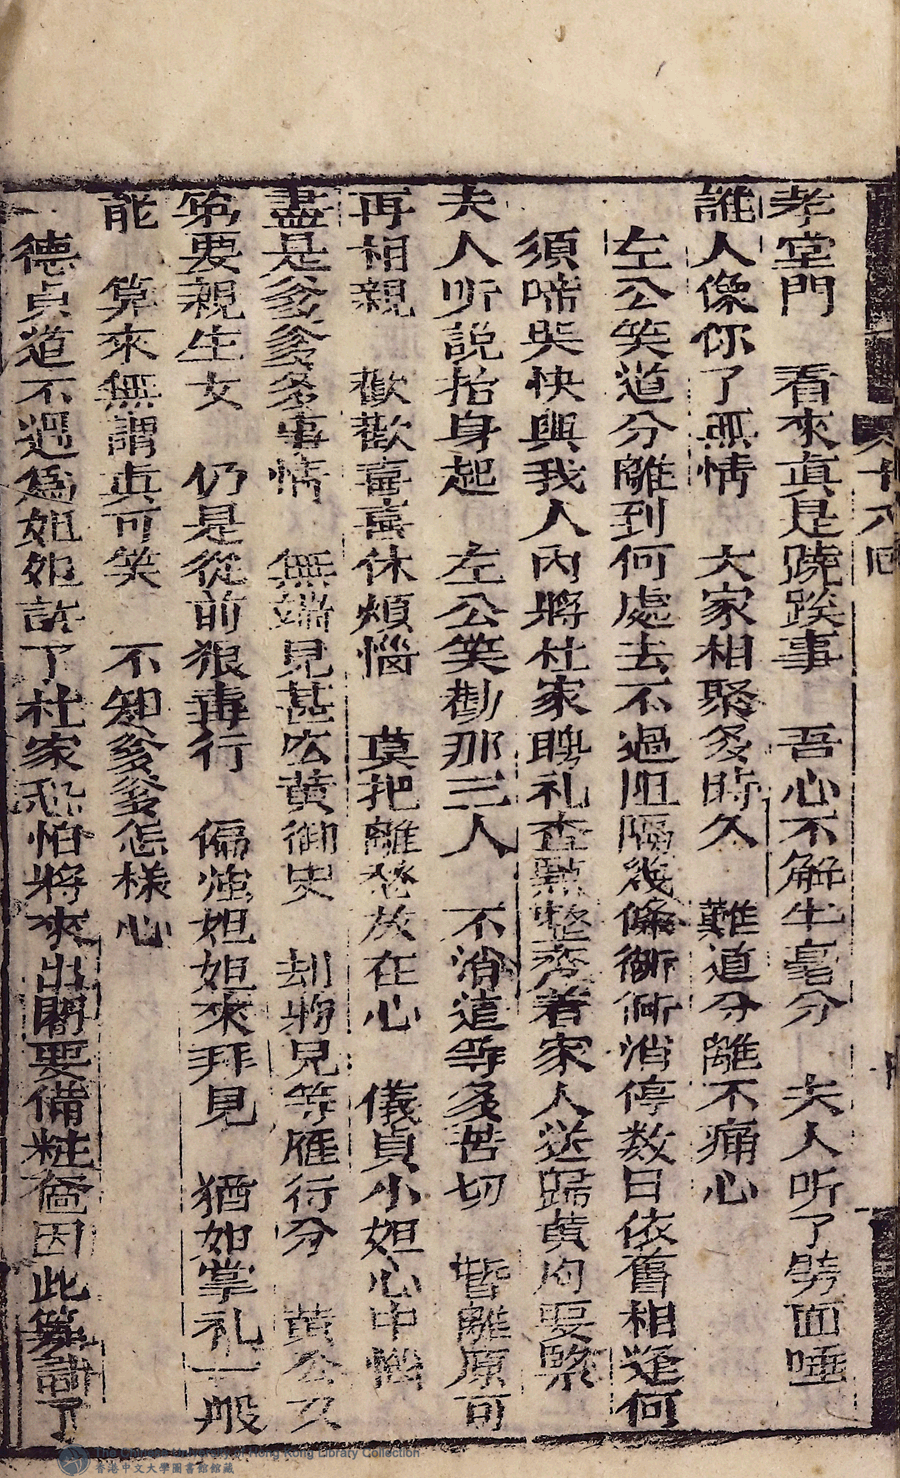 十八回
孝堂門　看來真是蹺蹊事　吾心不解半毫分　夫人听了劈面唾
誰人像你了無情　大家相聚多時久　難道分離不痛心
左公笑道分離到何處去不過阻隔幾條衚衕消停数日依舊相逢何
須啼哭快與我人內將杜家聘礼查點整齐着家人送歸黄府要緊
夫人听說抬身起　左公笑勸那三人　不消這等多苦切　暫離原可
再相親　歡歡喜喜休煩惱　莫把離愁放在心　儀貞小姐心中惱
盡是爹爹多事情　無端見甚庅黄御史　刦將兒等雁行分　黄公又
第要親生女　仍是從前狠毒行　偏強姐姐來拜見　猶如掌礼一般
能　算來無謂真可笑　不知爹爹怎樣心
德貞道不過爲姐姐許了杜家恐怕將來出閣要備粧奩因此算計了
The Chinese University of Hong Kong Library Collection
香港中文大學圖書館館藏